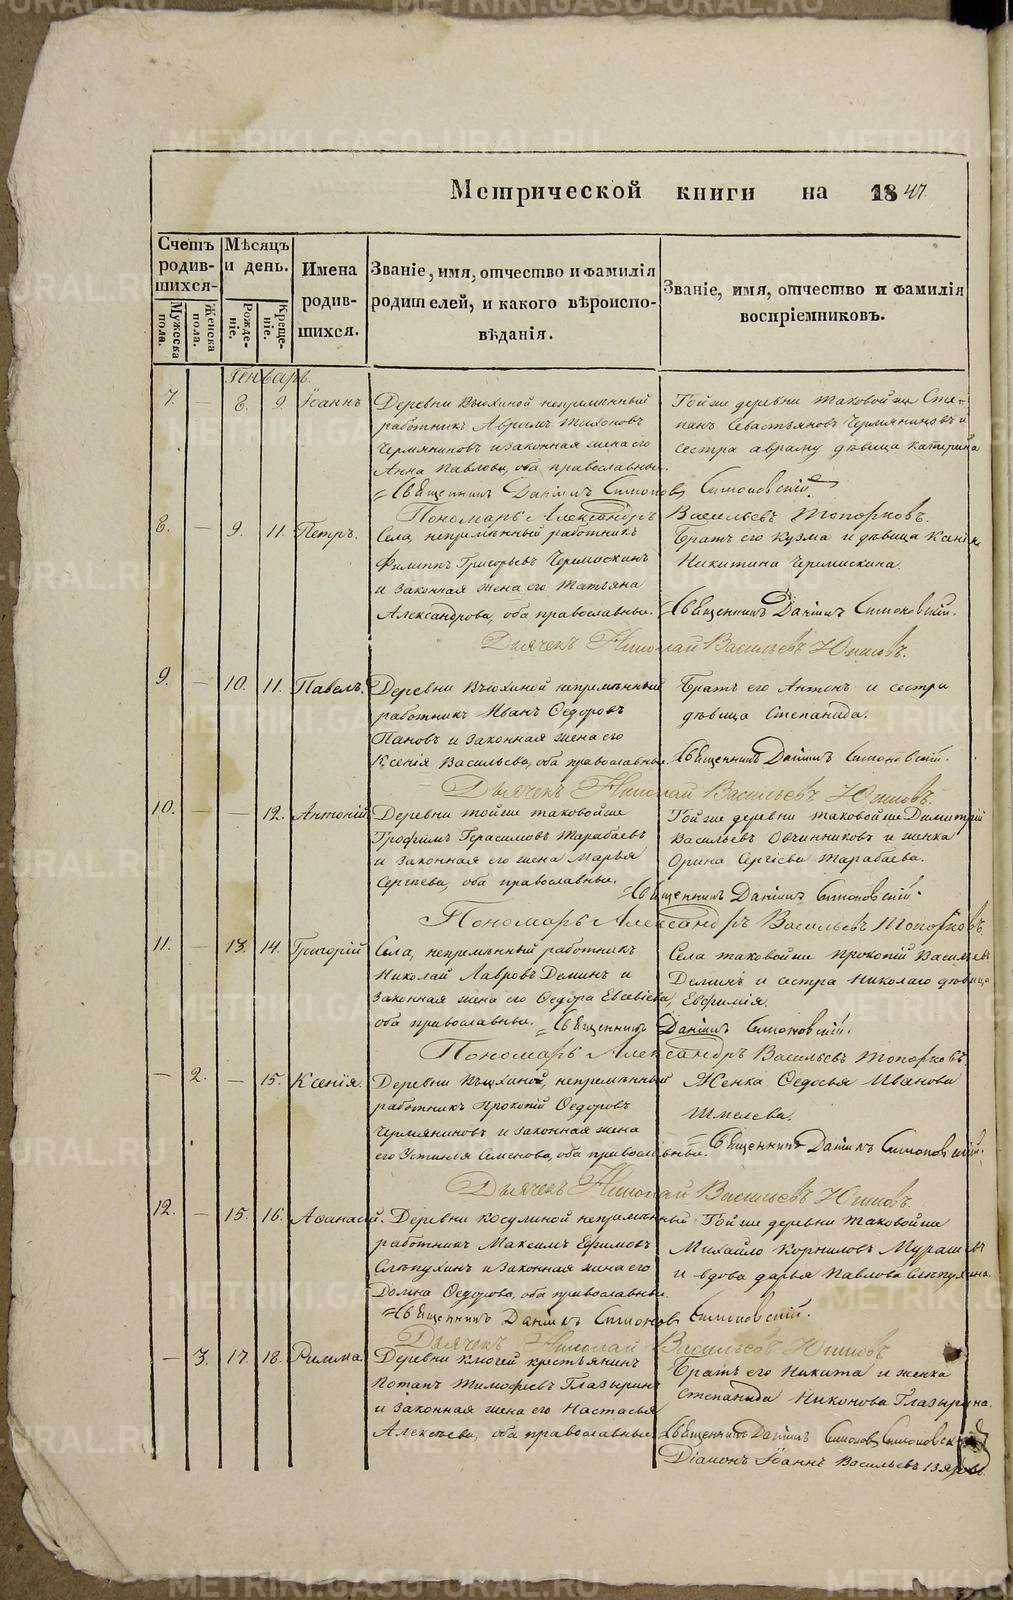 Метрической книги на 1847.
Счетъ родив-шихся-
Мужеска пола.
Женска пола.
Мѣсяцъ и день.
Рожде-ніе.
Креще-ніе.
Имена родив-шихся.
Званіе, имя, отчество и фамилія
родителей, и какого вѣроиспо-
вѣданія.
Званіе, имя, отчество и фамилія
воспріемниковъ.
Генварь.
7. — 8. 9. Іоаннъ
Деревни Вьюхиной непремѣнный
работникъ Аврамъ Тихоновъ
Чермяниновъ и законная жена его
Анна Павлова, оба православные.
Тойже деревни таковой же Сте-
панъ Севастьяновъ Чермяниновъ и
сестра Авраму дѣвица Катерина
Священникъ Даніилъ Симоновъ Симоновскій.
Пономарь Александръ Васильевъ Топорковъ.
8. — 9. 11. Петръ.
Села, непремѣнный работникъ
Филиппъ Григорьевъ Черемискинъ
и законная жена его Татьяна
Александрова, оба православные.
Братъ его Кузма и дѣвица Ксенія
Никитина Черемискина.
Священникъ Даніилъ Симоновскій.
Дьячекъ Николай Васильевъ Юшковъ.
9. — 10. 11. Павелъ.
Деревни Вьюхиной непремѣнный
работникъ Иванъ Ѳедоровъ
Пановъ и законная жена его
Ксенія Васильева, оба православные.
Братъ его Антонъ и сестра
дѣвица Степанида.
Священникъ Даніилъ Симоновскій.
Дьячекъ Николай Васильевъ Юшковъ.
10. — — 12. Антоній
Деревни тойже таковойже
Трофимъ Герасимовъ Тарабаевъ
и законная его жена Марья
Сергѣева, оба православные.
Тойже деревни таковой же Димитрій
Васильевъ Овчинниковъ и женка
Орина Сергіева Тарабаева.
Священникъ Даніилъ Симоновскій.
Пономарь Александръ Васильевъ Топорковъ.
11. — 13. 14. Григорій
Села, непремѣнный работникъ
Николай Лавровъ Деминъ и
законная жена его Ѳедора Евсевіева,
оба православные.
Села таковойже Прокопій Васильевъ
Деминъ и сестра Николаю дѣвица
Евфимія.
Священникъ Даніилъ Симоновскій.
Пономарь Александръ Васильевъ Топорковъ.
— 2. — 15. Ксенія.
Деревни Вьюхиной, непремѣнный
работникъ Прокопій Ѳедоровъ
Чермяниновъ и законная жена
его Устинья Семенова, оба православные.
Женка Ѳедосья Иванова
Шмелева.
Священникъ Даніилъ Симоновскій.
Дьячекъ Николай Васильевъ Юшковъ.
12. — 15. 16. Аѳанасій.
Деревни Косулиной непремѣнный
работникъ Максимъ Ефимовъ
Слѣпухинъ и законная жена его
Домна Ѳедорова, оба православные.
Тойже деревни таковойже
Михайло Корниловъ Мурашевъ
и вдова Дарья Павлова Слѣпухина.
Священникъ Даніилъ Симоновъ Симоновскій.
Дьячекъ Николай Васильевъ Юшковъ
— 3. 17. 18. Римма.
Деревни Ключей крестьянинъ
Потапъ Тимофеевъ Глазыринъ
и законная жена его Настасья
Алексѣева, оба православные.
Братъ его Никита и женка
Степанида Никонова Глазырина.
Священникъ Даніилъ Симоновъ Симоновскій
Діаконъ Іоаннъ Васильевъ
METRIKI.GASO-URAL.RU